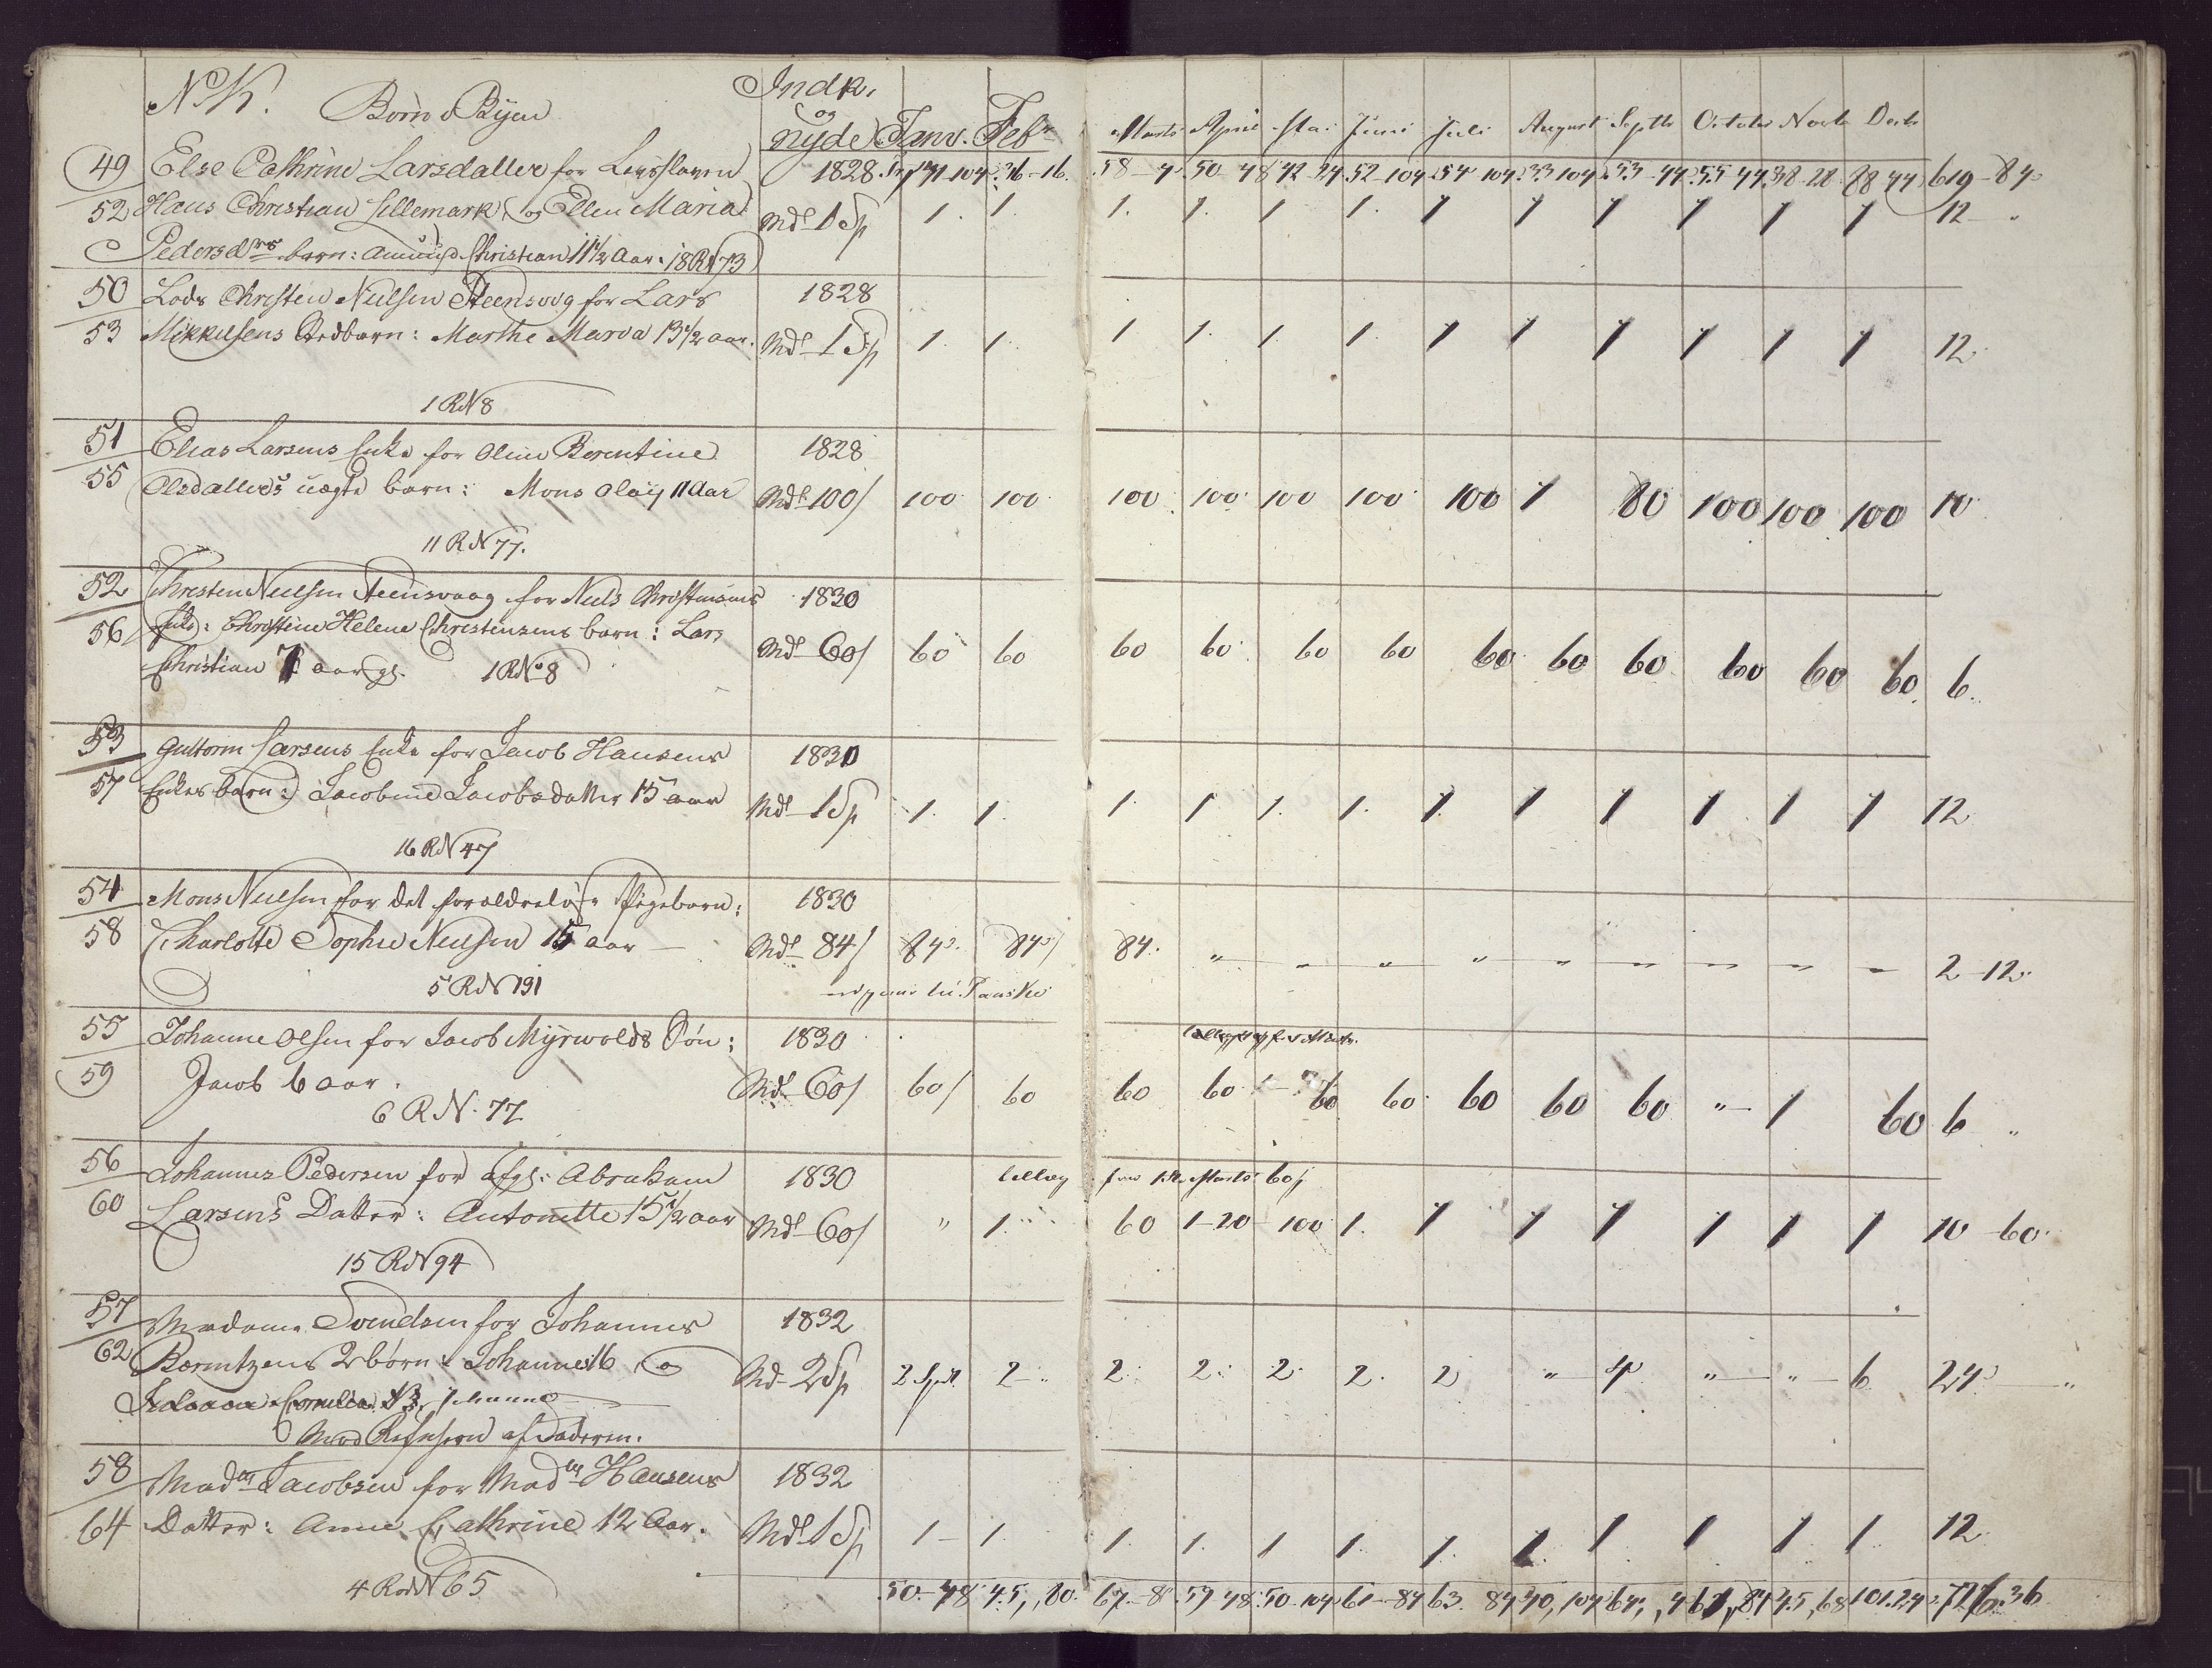 N K. Börn i Byen Indk. og nyde Janv. Febr Marts April Mai Juni Juli August Septb October Novb Decb
49 Else Cathrine Larsdatter for 1828 58 50 48 42 52 104 54 104 33 104 53 44 55 44 38 28 88 44 619 84
52 Hans Christian Lillemark og Ellen Maria Md 1 Sp 1. 1. 1. 1. 1 1. 1 1 1 1 1 1 12
Pedersdrs barn: Christian 11 1/2 Aar. 18 R N 73
50 Lods Christen Neelsen Steensvog for Lars 1828
53 Mikkelsens barn: Marthe Maria 13 1/2 aar. Md 1 Sp 1. 1. 1 1. 1. 1. 1 1 1 1 1 1 12
1 R N 8
51 Elias Larsens Enke for Oline Berentine 1828
55 Olsdatters uægte barn: Mons Olay 11 Aar Md 100/ 100 100 100 100 100 100 100 1 80 100 100 100 10
11 R N 77.
52 Christen Neelsen Steensvaag for Neels Christensens 1830
56 Enke: Christine Helene Christensens barn: Lars Md 60/ 60 60 60 60 60 60 60 60 60 60 60 60 6.
Christian 7 aar gl. 1 R No 8
53 Guttorm Larsens Enke for Jacob Hansens 1830
57 Enkes barn: Jacobine Jacobsdatter 15 aar Md 1 Sp 1. 1. 1. 1 1. 1. 1 1 1 1 1 1 12
16 R N 47
54 Mons Neelsen for det forældreløse Pigebarn: 1830
58 Charlotte Sophie Neelsen 15 aar — Md 84/ 84 84/ 84. " " " " " " " " " 2 - 12
5 R N 191
55 Johanne Olsen for Jacob Myrwolds Søn: 1830
59 Jacob 6 aar. Md 60/ 60/ 60 60 60 60 60 60 60 60 " 1 60 6 "
6 R N. 77
56 Johannes Pedersen for afgl: Abraham 1830 tillæg fra 1ste Marts 60/
60 Larsens Datter: Antonette 15 1/2 aar Md 60/ " 1 60 1-20 100 1. 1 1 1 1 1 1 10 60
15 R N 94
57 Madame Svendsen for Johannes 1832
62 Berentzens 2 börn: Johannes 16 og Md 2 Sp 2 Spd 2 " 2. 2. 2. 2. 2 " 4 " " 6 24 "
Cornelia 13,
Mod Refusion af Faderen.
58 Madm Jacobsen for Madm Hansens 1832
64 Datter: Anne Cathrine 12 Aar. Md 1 Sp 1 - 1. 1. 1. 1 1. 1. 1 1 1 1 1 12
4 Rod N 65
50 - 48 45, 80 67 - 8 59 48 50 104 61 84 63 84 40, 104 64, 4 61, 84 45, 68 101. 24 36